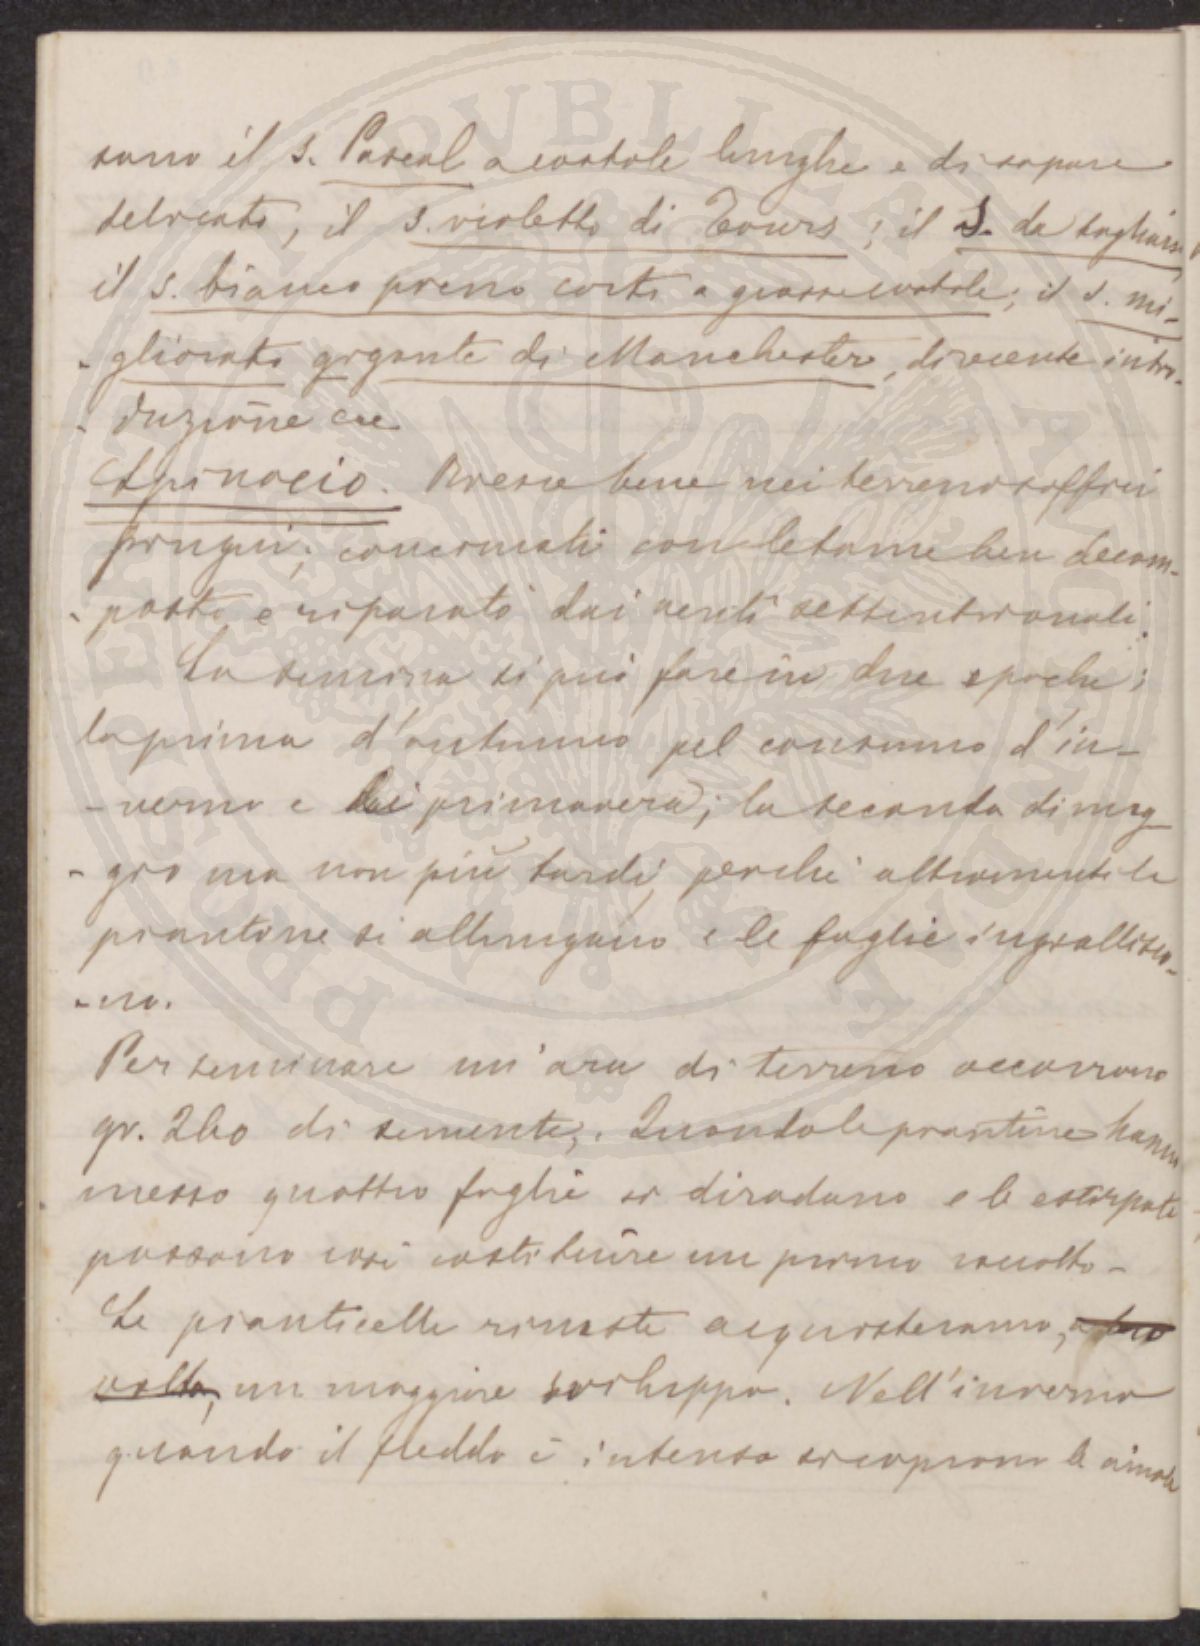 sono il s. Pascal a costole lunghe e di sapore
delicato, il s. violetto di Tours; il s. da tagliare,
il s. bianco pieno corto a grosse costole; il s. mi-
-gliorato gigante di Manchester, di recente intro-
-duzione ecc
Spinacio. Riesce bene nei terreni soffici
freschi, concimati con letame ben decom-
-posto e riparato dai venti settentrionali.
La semina si può fare in due epoche;
la prima d'autunno pel consumo d'in-
-verno e di primavera; la seconda di mag
-gio ma non più tardi, perché altrimenti le
piantine si allungano e le foglie ingialliscо-
-no.
Per seminare un'ara di terreno occorrono
gr. 260 di semente,. Quando le piantine hanno
messo quattro foglie si diradano e le estirpate
possono così costituire un primo raccolto-
Le pianticelle rimaste acquisteranno, a loro
volta, un maggiore sviluppo. Nell'inverno
quando il freddo è intenso si coprono le aiuole
PROSPERITATI PVBLICAE AVGENDAE